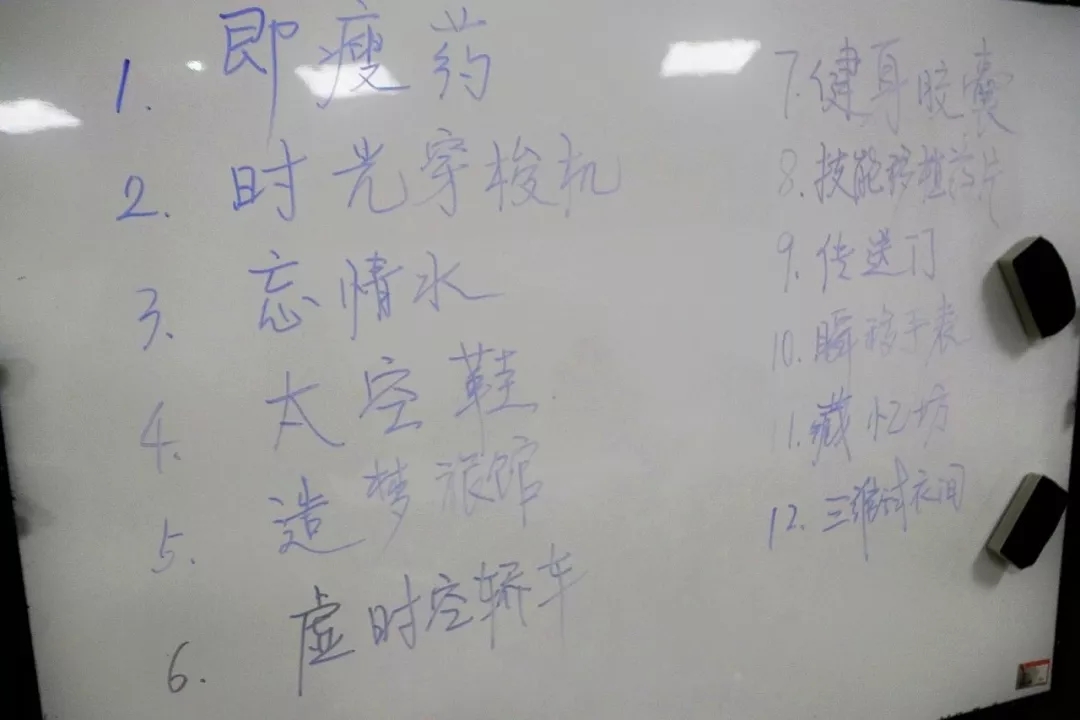 1. 即瘦药
2. 时光穿梭机
3. 忘情水
4. 太空鞋
5. 造梦旅馆
6. 虚时空轿车
7. 健身胶囊
8. 技能移植芯片
9. 传送门
10. 瞬移手表
11. 藏忆坊
12. 三维试衣间